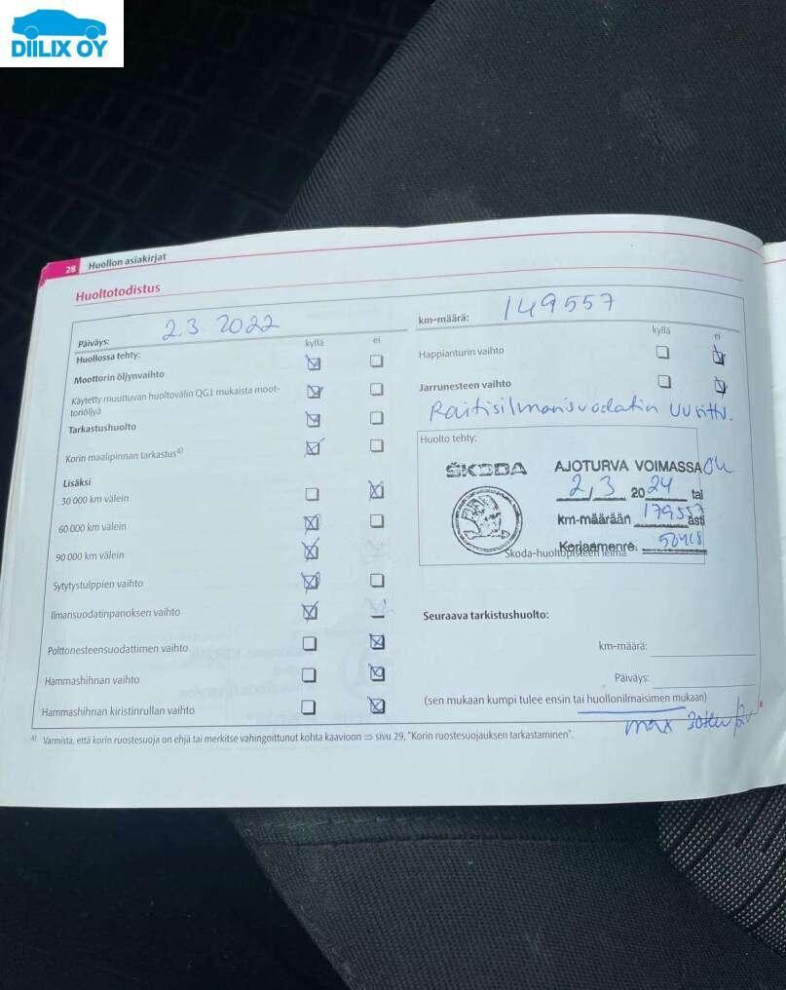 DIILIX OY
28 Huollon asiakirjat
Huoltotodistus
Päiväys: 2.3 2022
km-määrä: 149557
Huollossa tehty: kyllä ei
kyllä ei
Moottorin öljynvaihto
Käytetty muuttuvan huoltovälin QG1 mukaista moot-
toriöljyä
Tarkastushuolto
Korin maalipinnan tarkastus a)
Lisäksi
30 000 km välein
60 000 km välein
90 000 km välein
Sytytystulppien vaihto
Ilmansuodatinpanoksen vaihto
Polttonesteensuodattimen vaihto
Hammashihnan vaihto
Hammashihnan kiristinrullan vaihto
Happianturin vaihto
Jarrunesteen vaihto
Raitisilmansuodatin uusittu.
Huolto tehty:
ŠKODA AJOTURVA VOIMASSA
2/3 2024 tai
km-määrään 179557 asti
Korjaamonro:
Škoda-huoltopisteen leima
Seuraava tarkistushuolto:
km-määrä:
Päiväys:
(sen mukaan kumpi tulee ensin tai huollonilmaisimen mukaan)
max 30tkm/2v
a) Varmista, että korin ruostesuoja on ehjä tai merkitse vahingoittunut kohta kaavioon ⇒ sivu 29, "Korin ruostesuojauksen tarkastaminen".